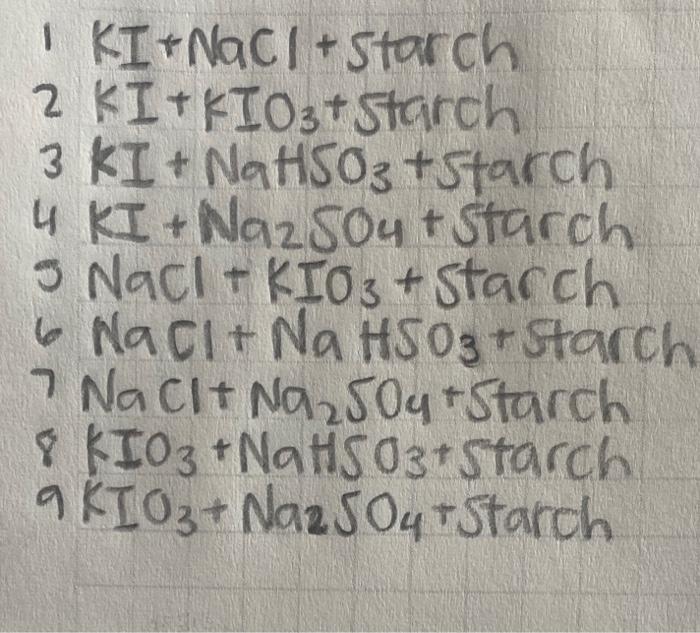 1 KI+NaCl+starch
2 KI+KIO3+Starch
3 KI+NaHSO3+Starch
4 KI+Na2SO4+Starch
5 NaCl+KIO3+Starch
6 NaCl+NaHSO3+Starch
7 NaCl+Na2SO4+Starch
8 KIO3+NaHSO3+Starch
9 KIO3+Na2SO4+Starch